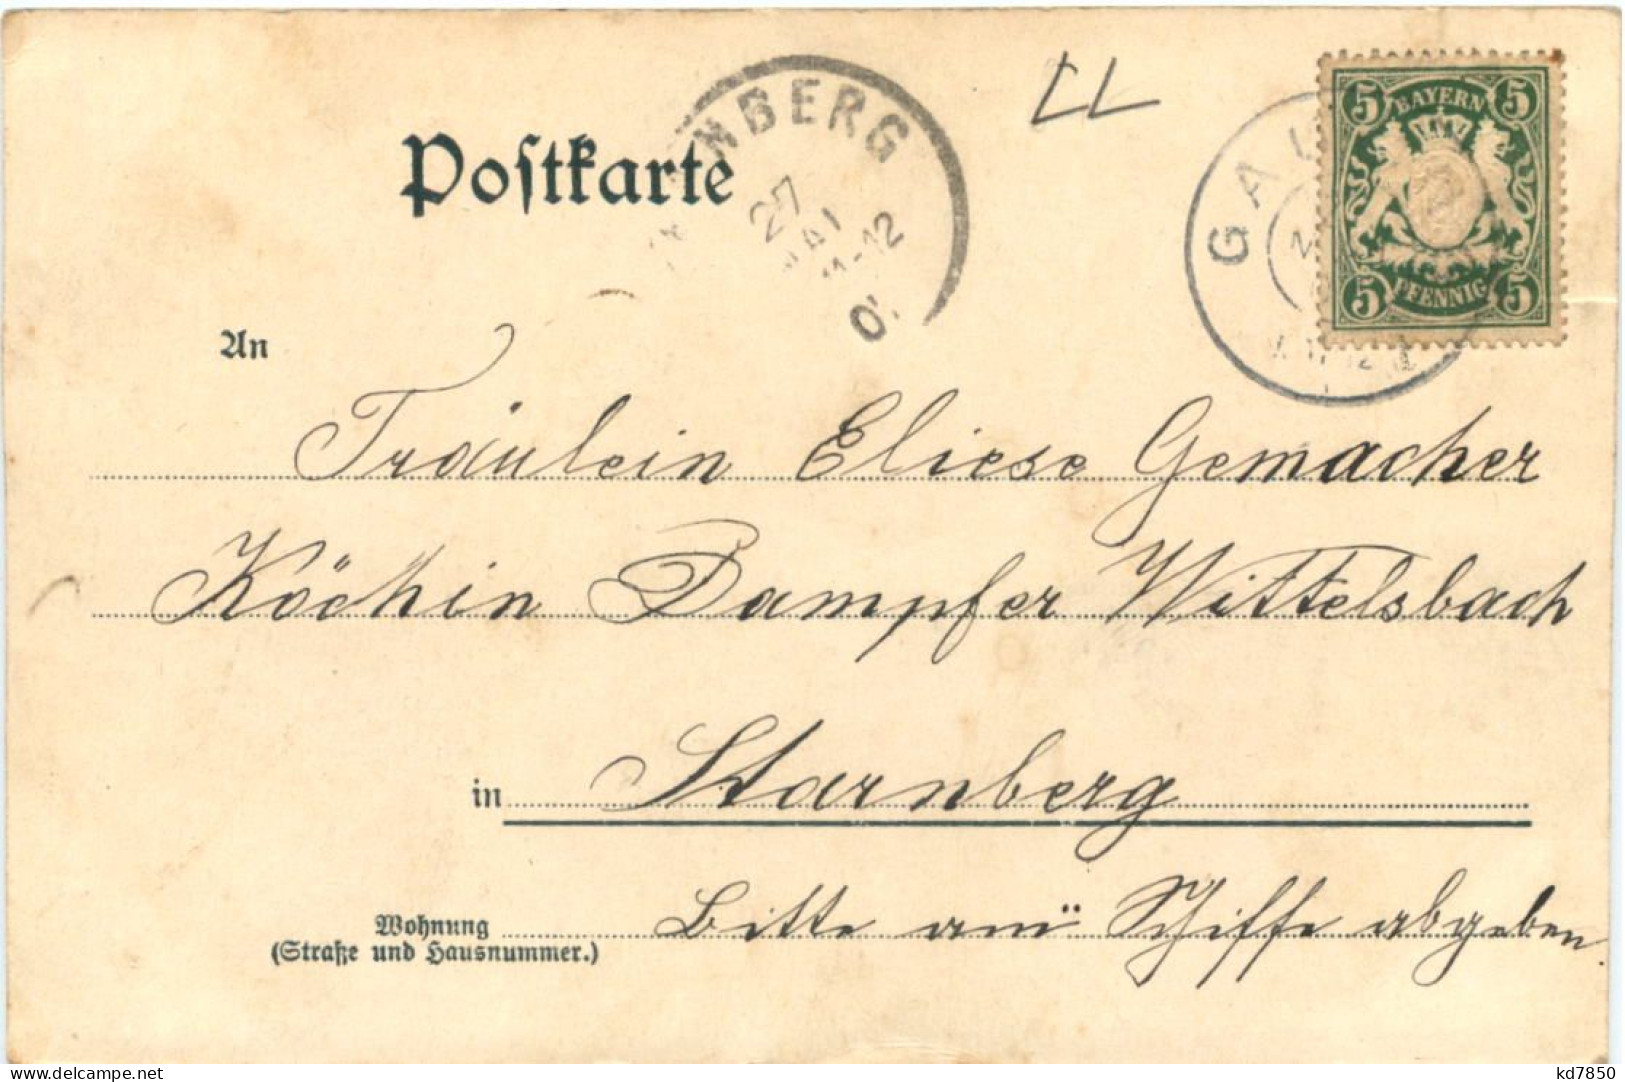 LL
BAYERN
5 5
5 5
PFENNIG
NBERG
27
MAI
11-12
GAU
Postkarte
An
Fräulein Eliese Gemacher
Köchin Dampfer Wittelsbach
in Starnberg
Wohnung
(Straße und Hausnummer.)
Bitte am Schiffe abgeben.
www.delcampe.net
kd7850